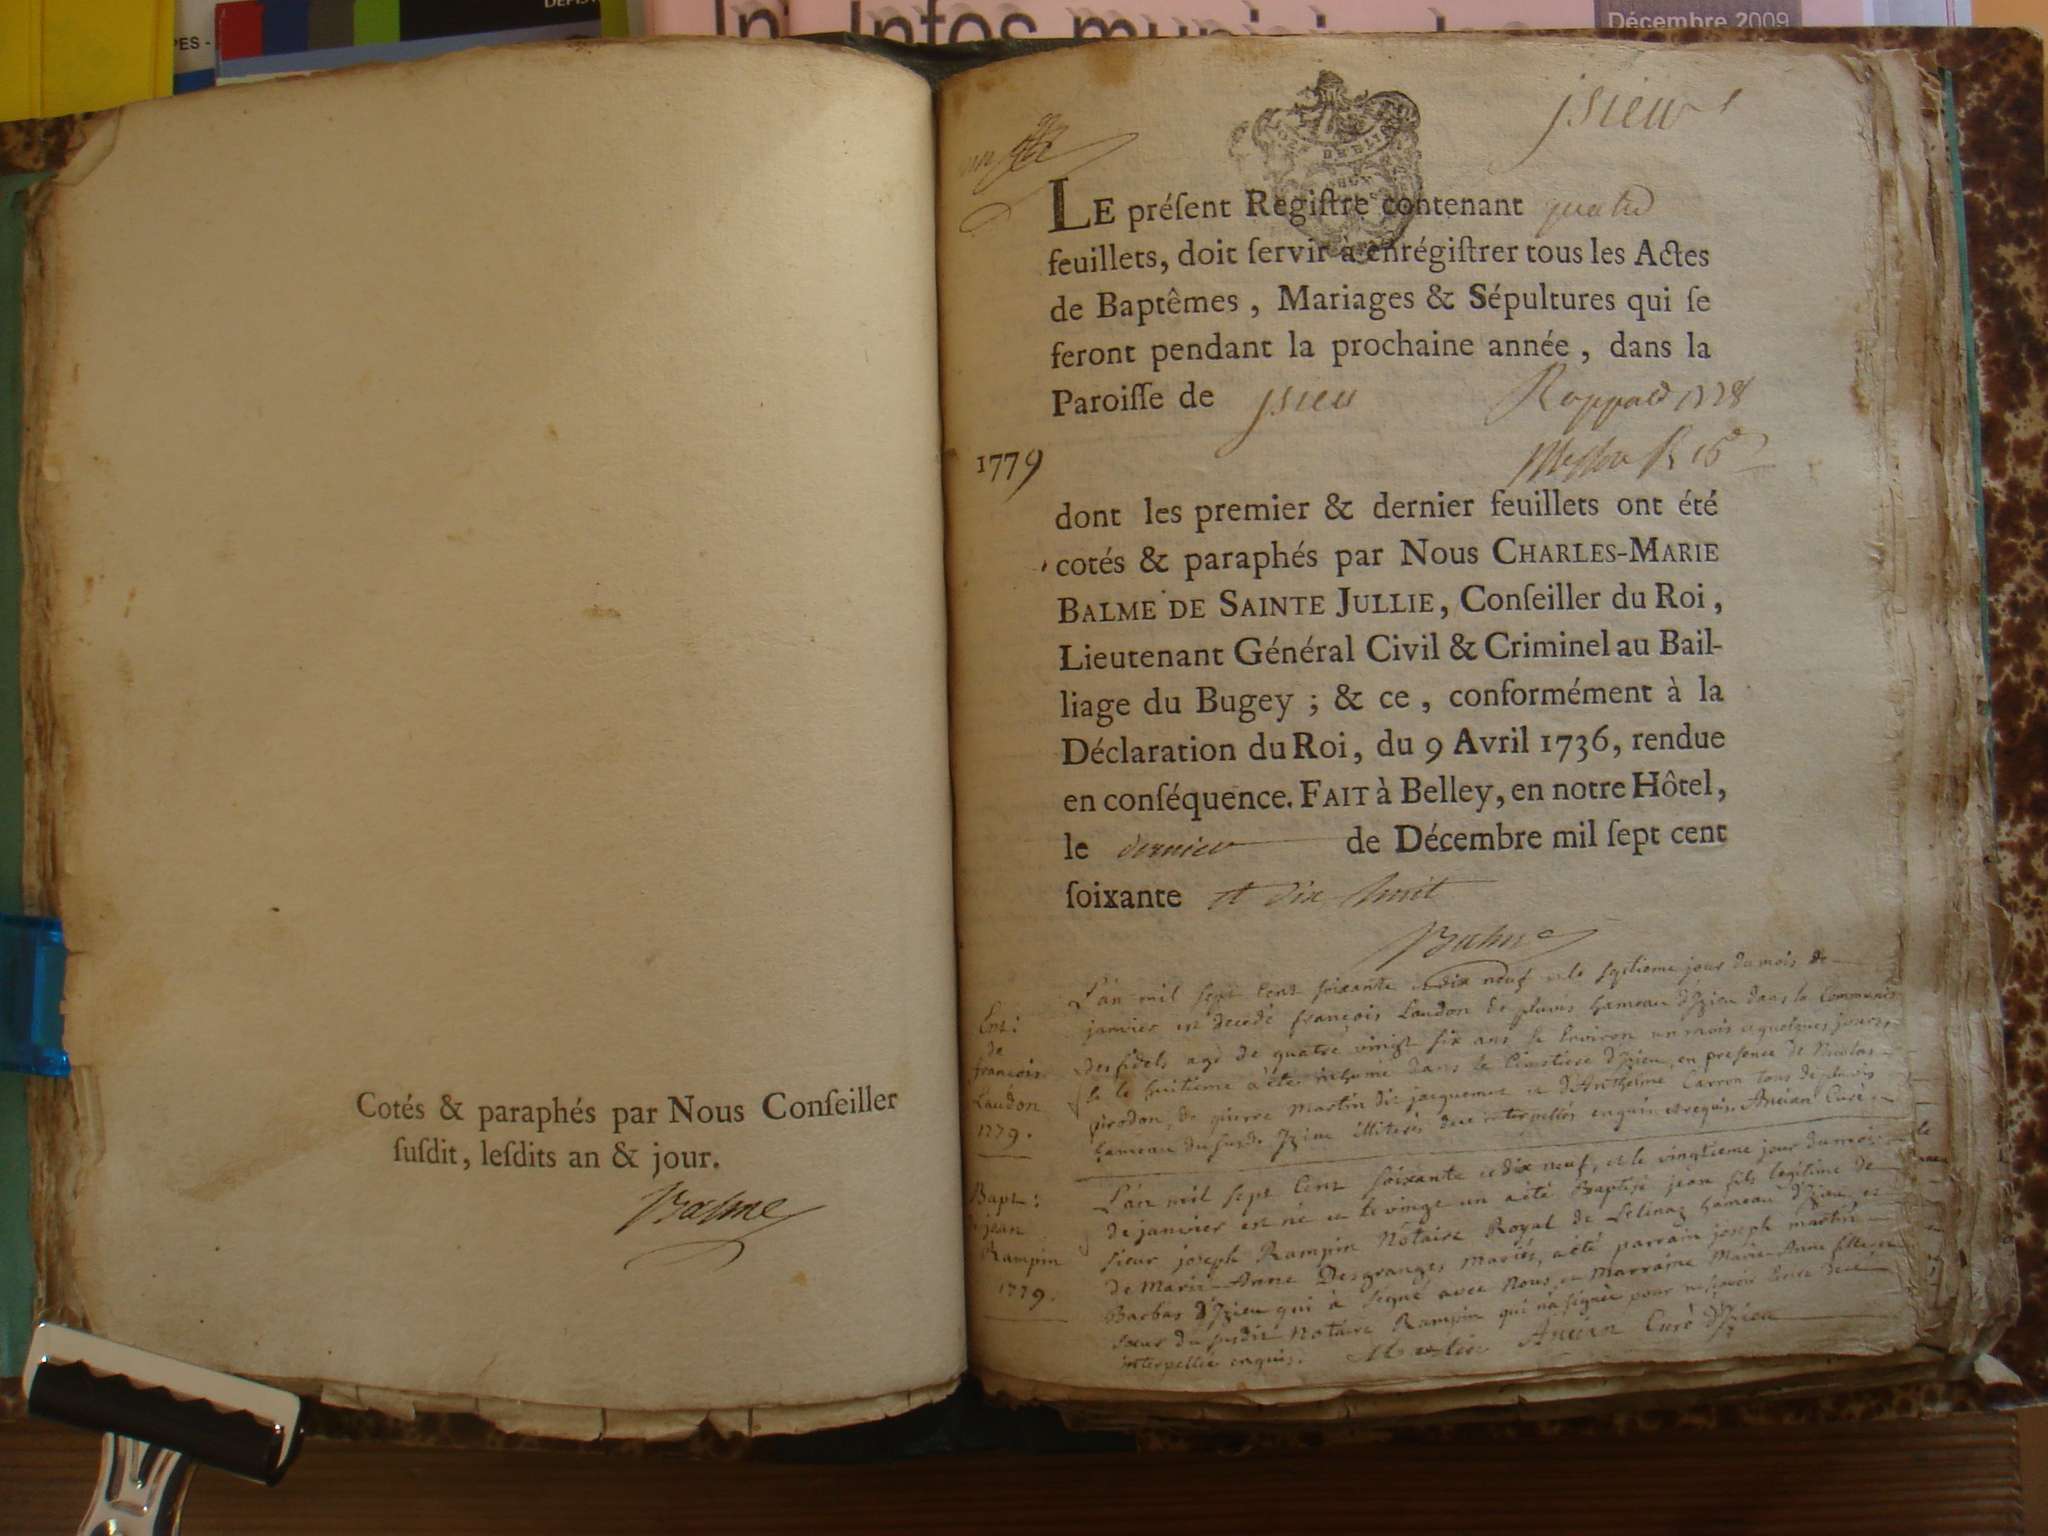 Décembre 2009
Cotés & paraphés par Nous Conſeiller
ſuſdit, leſdits an & jour.
Balme
jsieu
LE préſent Regiſtre contenant quatre
feuillets, doit ſervir à enrégiſtrer tous les Actes
de Baptêmes, Mariages & Sépultures qui ſe
feront pendant la prochaine année, dans la
Paroiſſe de jsieu
1779
dont les premier & dernier feuillets ont été
cotés & paraphés par Nous CHARLES-MARIE
BALME DE SAINTE JULLIE, Conſeiller du Roi,
Lieutenant Général Civil & Criminel au Bail-
liage du Bugey ; & ce, conformément à la
Déclaration du Roi, du 9 Avril 1736, rendue
en conſéquence. FAIT à Belley, en notre Hôtel,
le dernier de Décembre mil ſept cent
ſoixante et dix huit
Balme
Ent:
de
francois
Laudon
1779.
L'an mil sept cent soixante et dix neuf et le septieme jour du mois de
janvier est decedé françois Laudon de hameau d'Izieu dans la Communion
des fidels agé de quatre vingt six ans environ un mois et quelques jours,
le huitieme a été inhumé dans le Cimetiere d'Izieu, en presence de Nicolas
pirodon, de pierre martin dit jacquemet et d'Anthelme Carron tous de
hameau du susdit Izieu illiterés interpellés enquis et requis. Ancian Curé
Bapt:
jean
Rampin
1779.
L'an mil sept cent soixante et dix neuf, et le vingtieme jour du mois
de janvier est né et le vingt un a été Baptisé jean fils legitime de
sieur joseph Rampin Notaire Royal de Lelinaz hameau d'Izieu et
de Marie-Anne Desgranges mariés, a été parrain joseph martin
Barbas d'Izieu qui a signé avec Nous et marraine Marie-Anne
sœur du susdit Notaire Rampin qui n'a signée pour ne savoir
interpellée enquise. Martin Ancian Curé d'Izieu